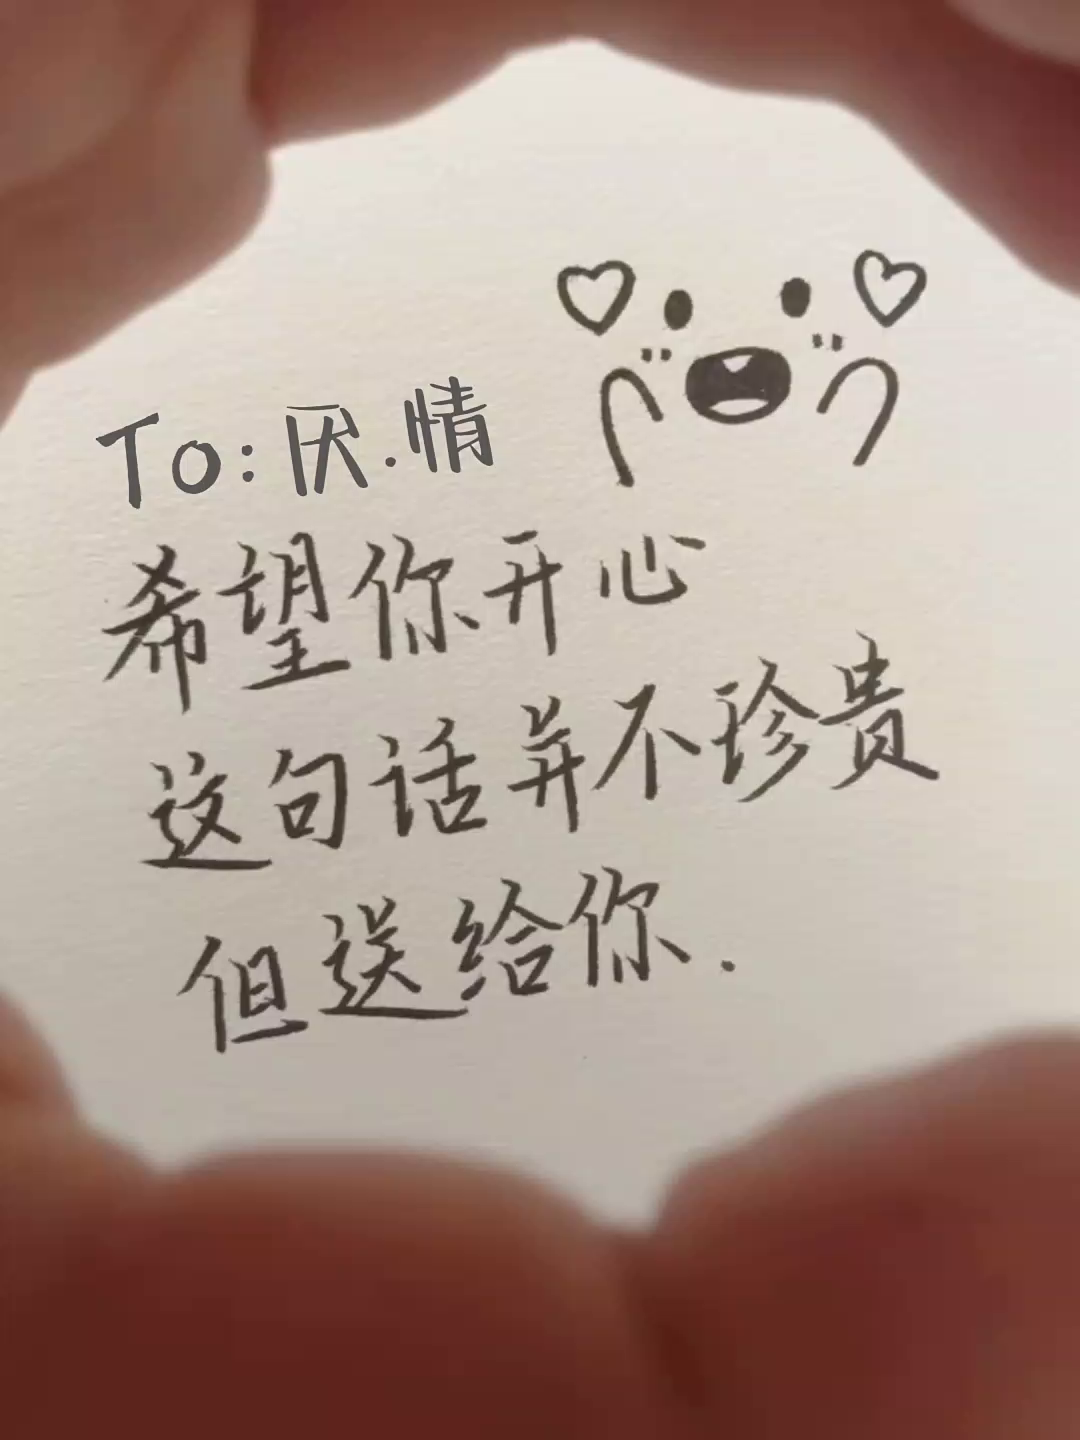 To:厌.情
希望你开心
这句话并不珍贵
但送给你.